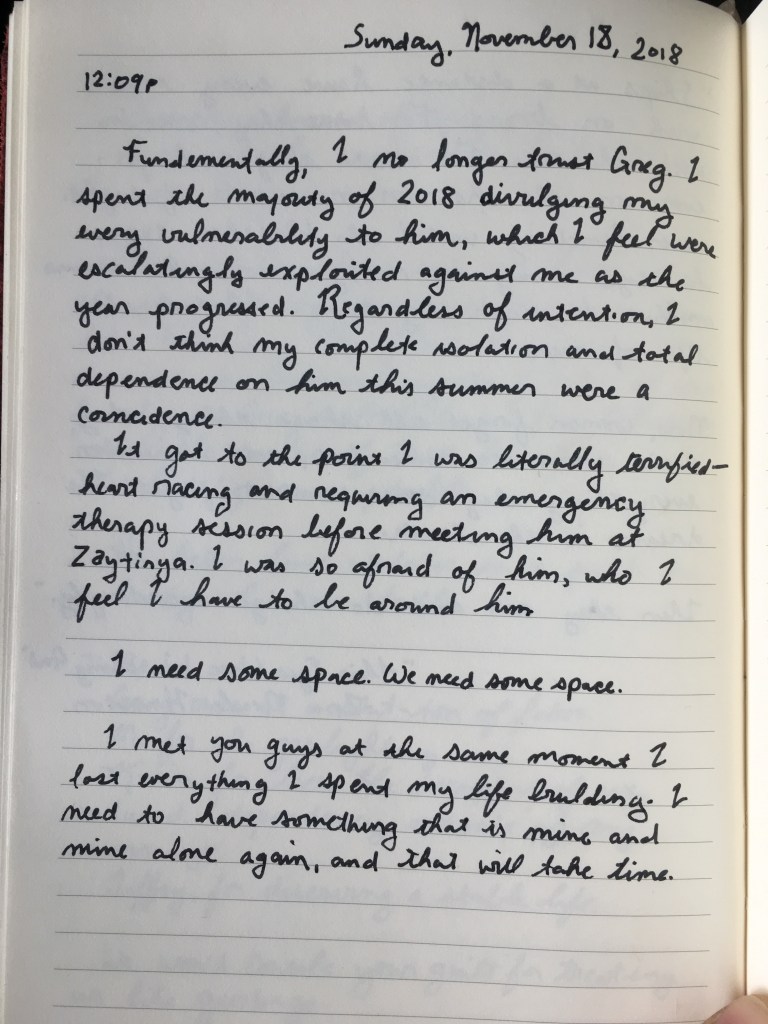 Sunday, November 18, 2018
12:09p
Fundementally, I no longer trust Greg. I
spent the majority of 2018 divulging my
every vulnerability to him, which I feel were
escalatingly exploited against me as the
year progressed. Regardless of intention, I
don't think my complete isolation and total
dependence on him this summer were a
coincidence.
It got to the point I was literally terrified–
heart racing and requiring an emergency
therapy session before meeting him at
Zaytinya. I was so afraid of him, who I
feel I have to be around him
I need some space. We need some space.
I met you guys at the same moment I
lost everything I spend my life building. I
need to have something that is mine and
mine alone again, and that will take time.